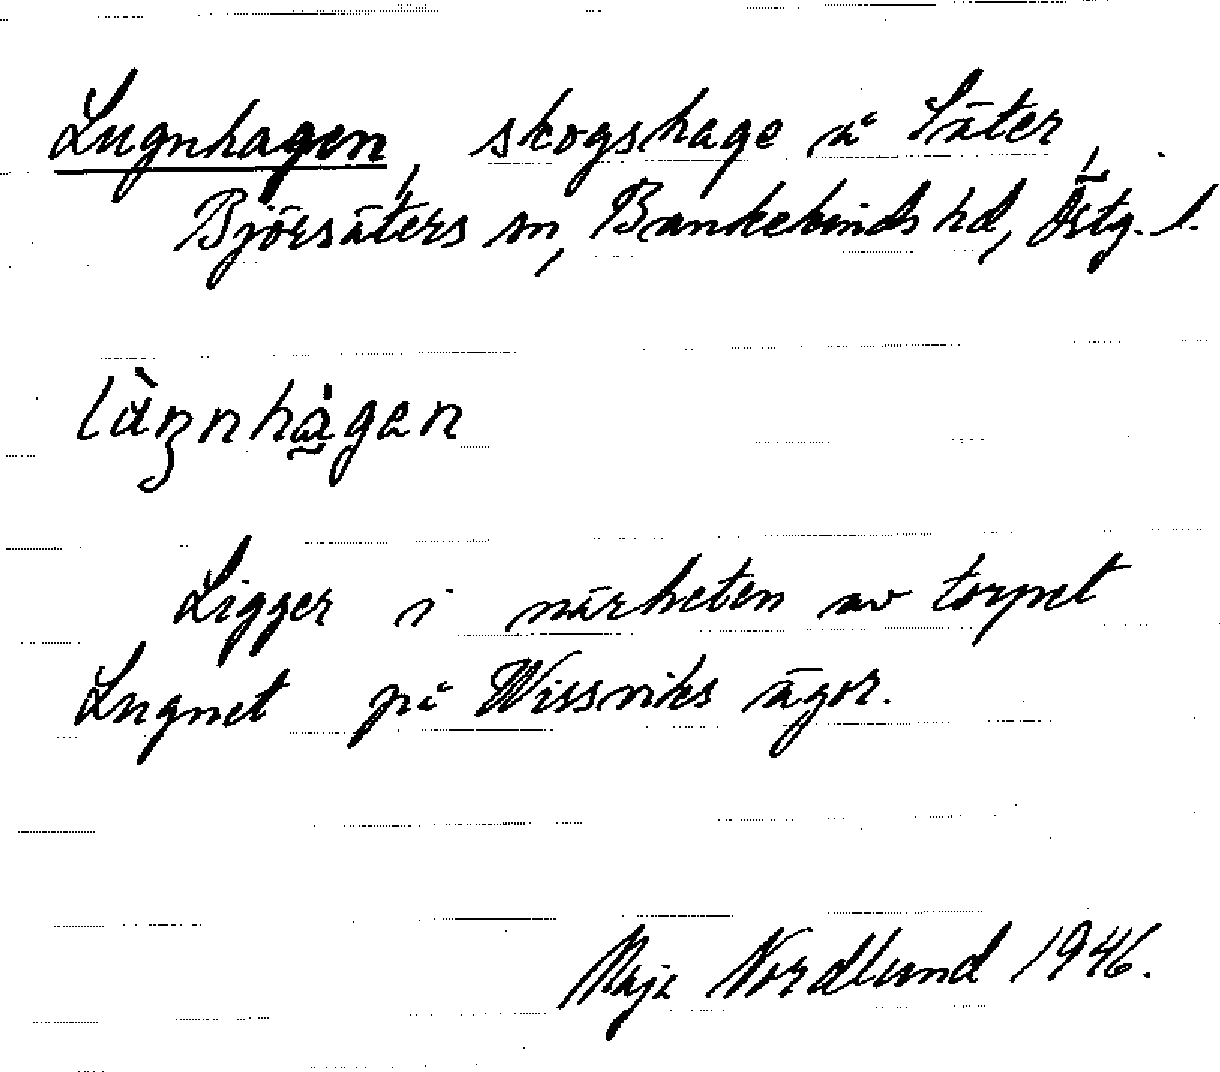 Lugnhagen, skogshage å Säter,
Björsäters sn, Bankekinds hd, Östg. l.
làŋnhàgen
Ligger i närheten av torpet
Lugnet på Wissviks ägor.
Maja Nordlund 1946.